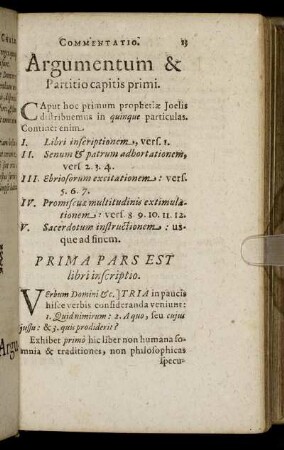 COMMENTATIO. 23
Argumentum &
Partitio capitis primi.
CAput hoc primum prophetiæ Joelis
distribuemus in quinque particulas.
Continet enim.
I. Libri inscriptionem, vers. 1.
II. Senum & patrum adhortationem,
vers 2. 3. 4.
III Ebriosorum excitationem: vers.
5. 6. 7.
IV. Promiscuæ multitudinis extimula-
tionem: vers 8. 9. 10. 11. 12.
V. Sacerdotum instructionem: us-
que ad finem.
PRIMA PARS EST
libri inscriptio.
VErbum Domini &c.) TRIA in paucis
hisce verbis consideranda veniunt:
1. Quid nimirum: 2. A quo, seu cujus
jussu: & 3. quis prodiderit?
Exhibet primò hic liber non humana so-
mnia & traditiones, non philosophicas
specu-